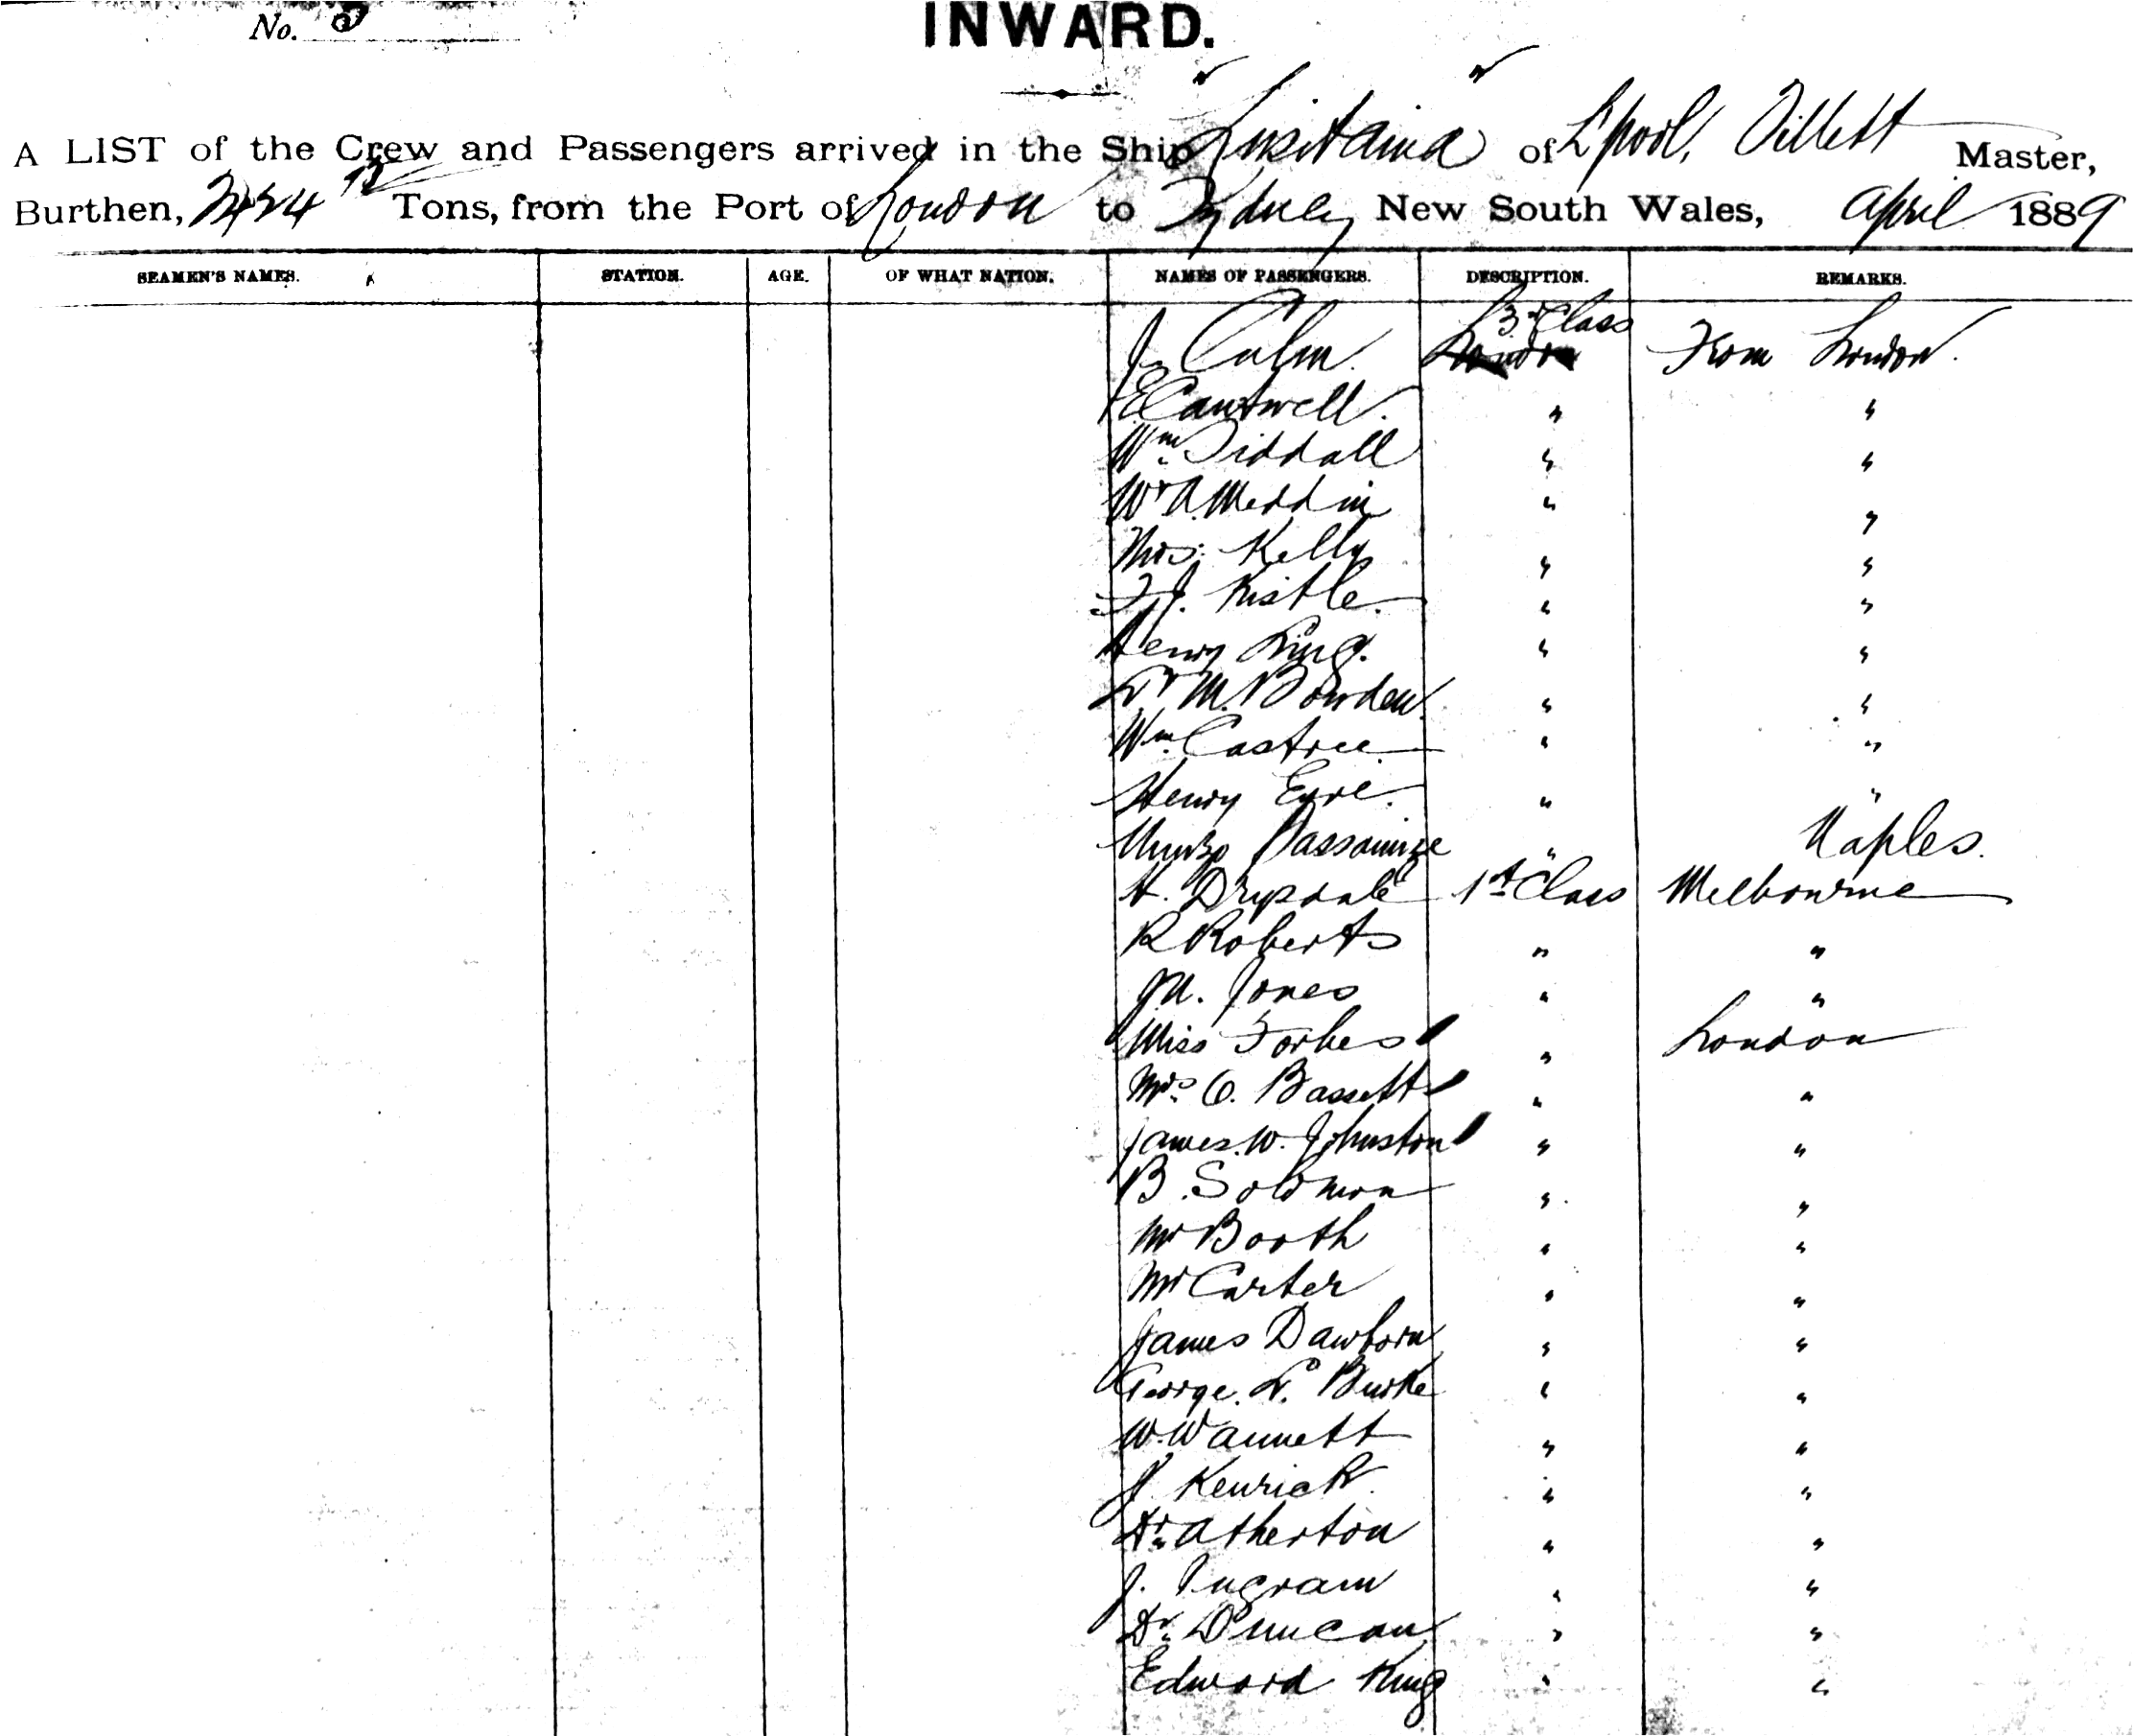 No. 5
INWARD.
A LIST of the Crew and Passengers arrived in the Ship "Lusitania" of L'pool, Tillett Master,
Burthen, Tons, from the Port of London to Sydney, New South Wales, April 1889
SEAMEN'S NAMES. STATION. AGE. OF WHAT NATION. NAMES OF PASSENGERS. DESCRIPTION. REMARKS.
J. Calm. 3rd Class From London.
E Cantwell. " "
Wm. Siddall " "
Wm Meddin " "
Thos: Kelly " "
F. J. Kistle. " "
Henry King. " "
M. Bowden. " "
Wm. Castree " "
Henry Eyre. " "
" Naples.
H. Drysdale 1st Class Melbourne
R Roberts " "
J A. Jones " "
Miss Forbes " London
Mrs. C. Bassett " "
James. W. Johnston " "
B. Solomon " "
Mr Booth " "
Mr Carter " "
James Dawborn " "
George. L. Burke " "
W. Wannett " "
J. Kenrick. " "
Dr. Atherton " "
J. Ingram " "
Dr. Duncan " "
Edward King " "